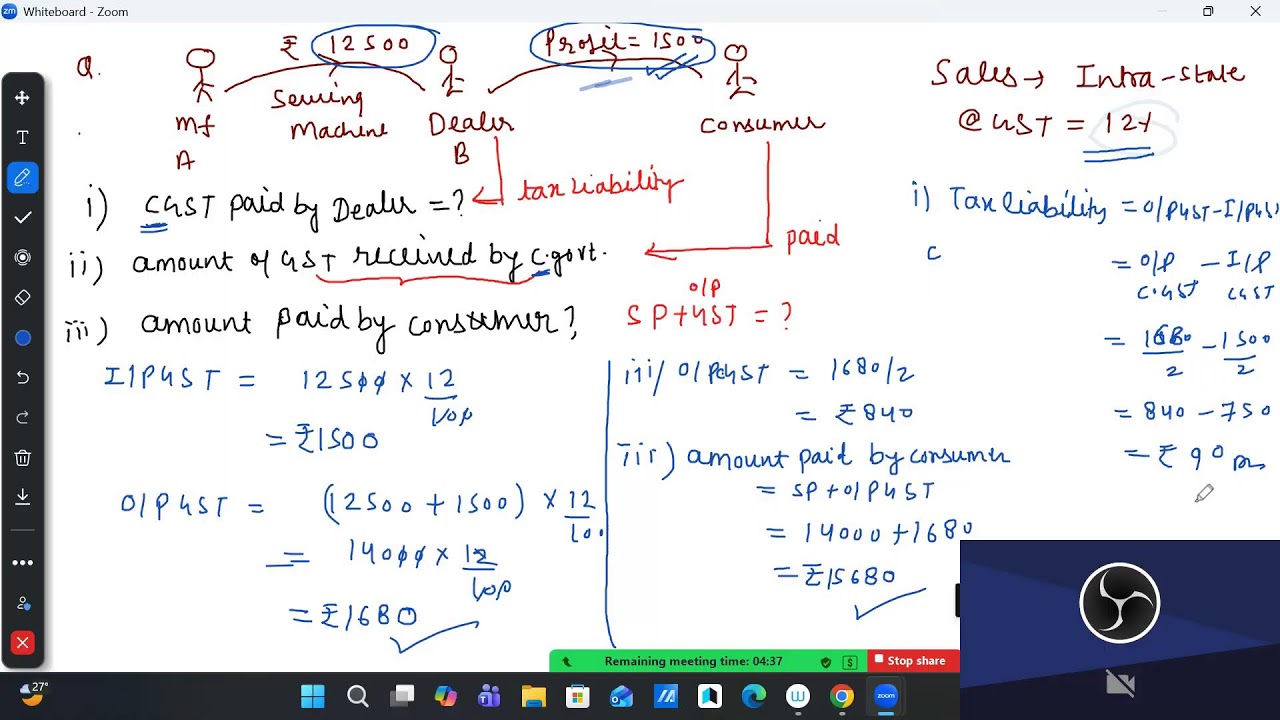 Whiteboard - Zoom
Q.
₹ 12500
Profit = 1500
Sewing
Machine
mf
A
Dealer
B
Consumer
Sales → Intra-State
@ GST = 12%
i) CGST paid by Dealer = ?
tax liability
ii) amount of GST received by C.govt.
paid
iii) amount paid by consumer?
O/P
SP + GST = ?
I/P GST = 12500 × 12/100
= ₹1500
O/P GST = (12500 + 1500) × 12/100
= 14000 × 12/100
= ₹1680
iii/ O/P CGST = 1680/2
= ₹840
iii) amount paid by consumer
= SP + O/P GST
= 14000 + 1680
= ₹15680
i) Tax liability = O/P GST - I/P GST
C
= O/P CGST - I/P CGST
= 1680/2 - 1500/2
= 840 - 750
= ₹ 90
Remaining meeting time: 04:37
Stop share
27°
zoom